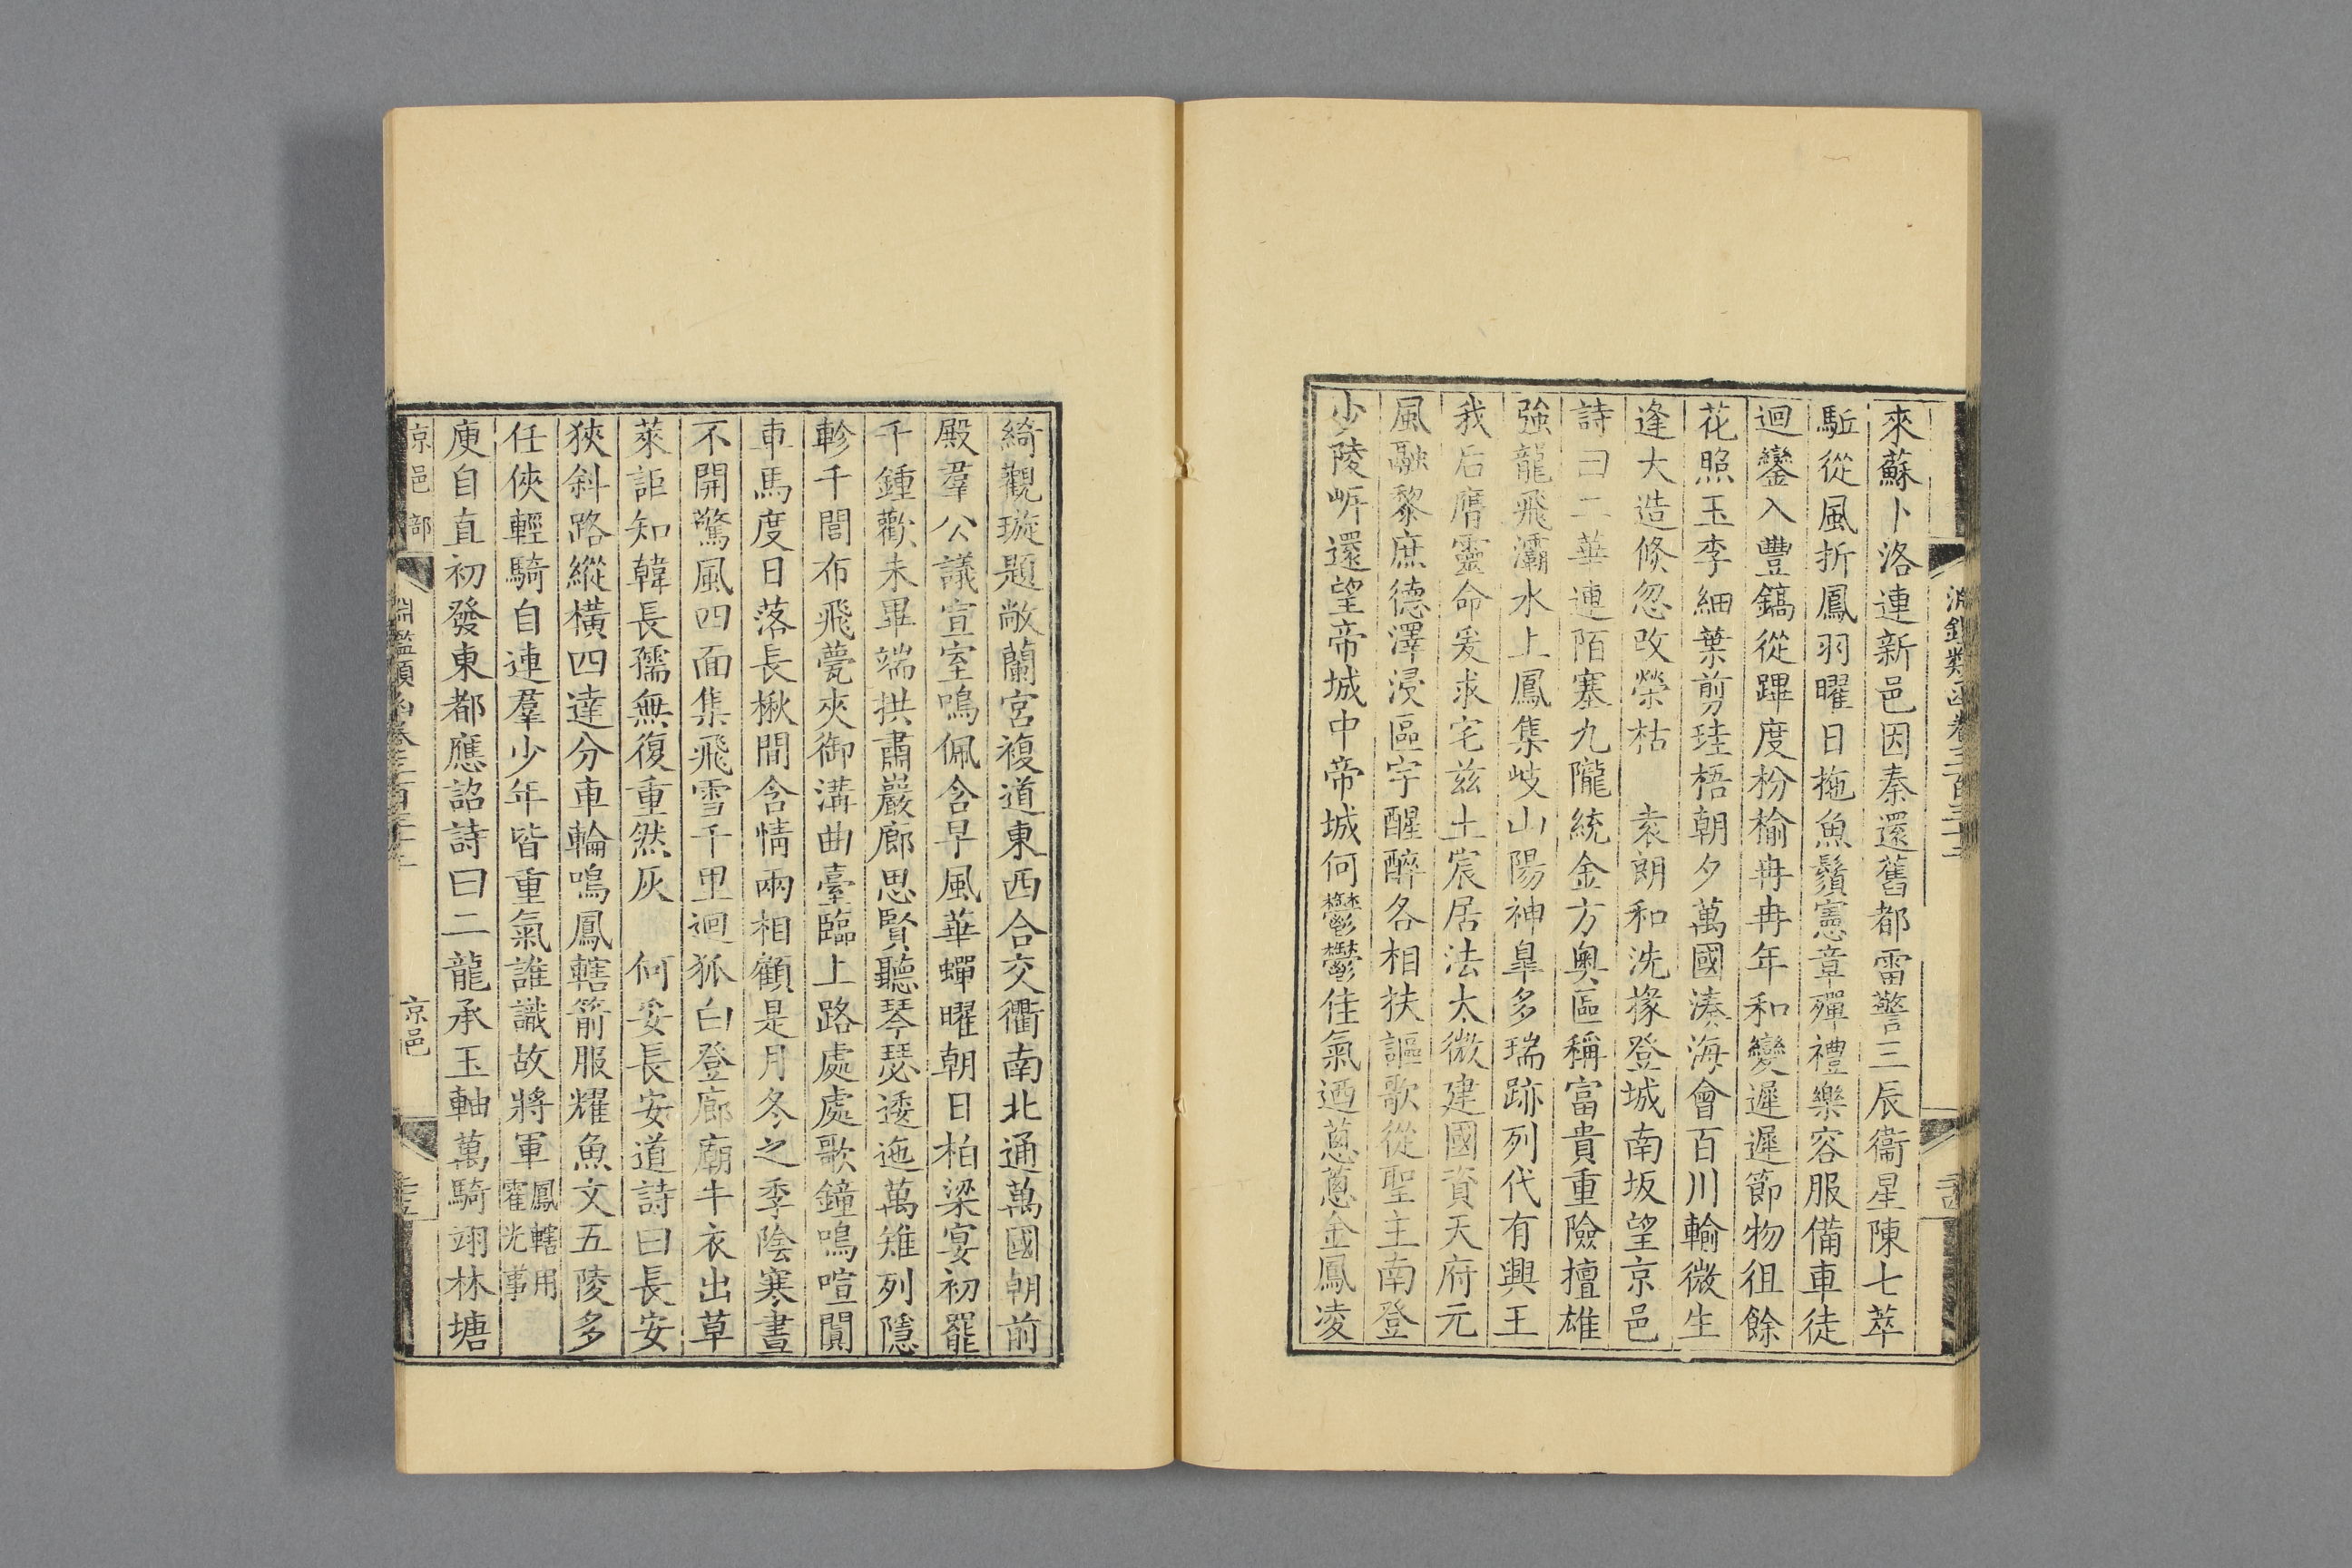 來蘇卜洛連新邑因秦還舊都雷警三辰衞星陳七萃
駈從風折鳳羽曜日拖魚鬚憲章殫禮樂容服備車徒
迴鑾入豐鎬從蹕度枌榆冉冉年和變遲遲節物徂餘
花照玉李細葉剪珪梧朝夕萬國湊海會百川輸微生
逢大造倏忽改榮枯　袁朗和洗掾登城南坂望京邑
詩曰二華連陌塞九隴統金方奧區稱富貴重險擅雄
強龍飛灞水上鳳集岐山陽神皐多瑞跡列代有興王
我后膺靈命爰求宅兹土宸居法太微建國資天府元
風融黎庶德澤浸區宇醒醉各相扶謳歌從聖主南登
少陵岍還望帝城中帝城何鬱鬱佳氣迺葱葱金鳳凌
綺觀璇題敞蘭宮複道東西合交衢南北通萬國朝前
殿羣公議宣室鳴佩含早風華蟬曜朝日柏梁宴初罷
千鍾歡未畢端拱肅巖廊思賢聽琴瑟逶迤萬雉列隱
軫千閭布飛甍夾御溝曲臺臨上路處處歌鐘鳴喧闐
車馬度日落長楸間含情兩相顧是月冬之季陰寒晝
不開驚風四面集飛雪千里迴狐白登廊廟牛衣出草
萊詎知韓長孺無復重然灰　何妥長安道詩曰長安
狹斜路縱橫四達分車輪鳴鳳轄箭服耀魚文五陵多
任俠輕騎自連羣少年皆重氣誰識故將軍鳳轄用霍光事
庾自直初發東都應詔詩曰二龍承玉軸萬騎翊林塘
京邑部
淵鑑類函卷三百三十三
京邑